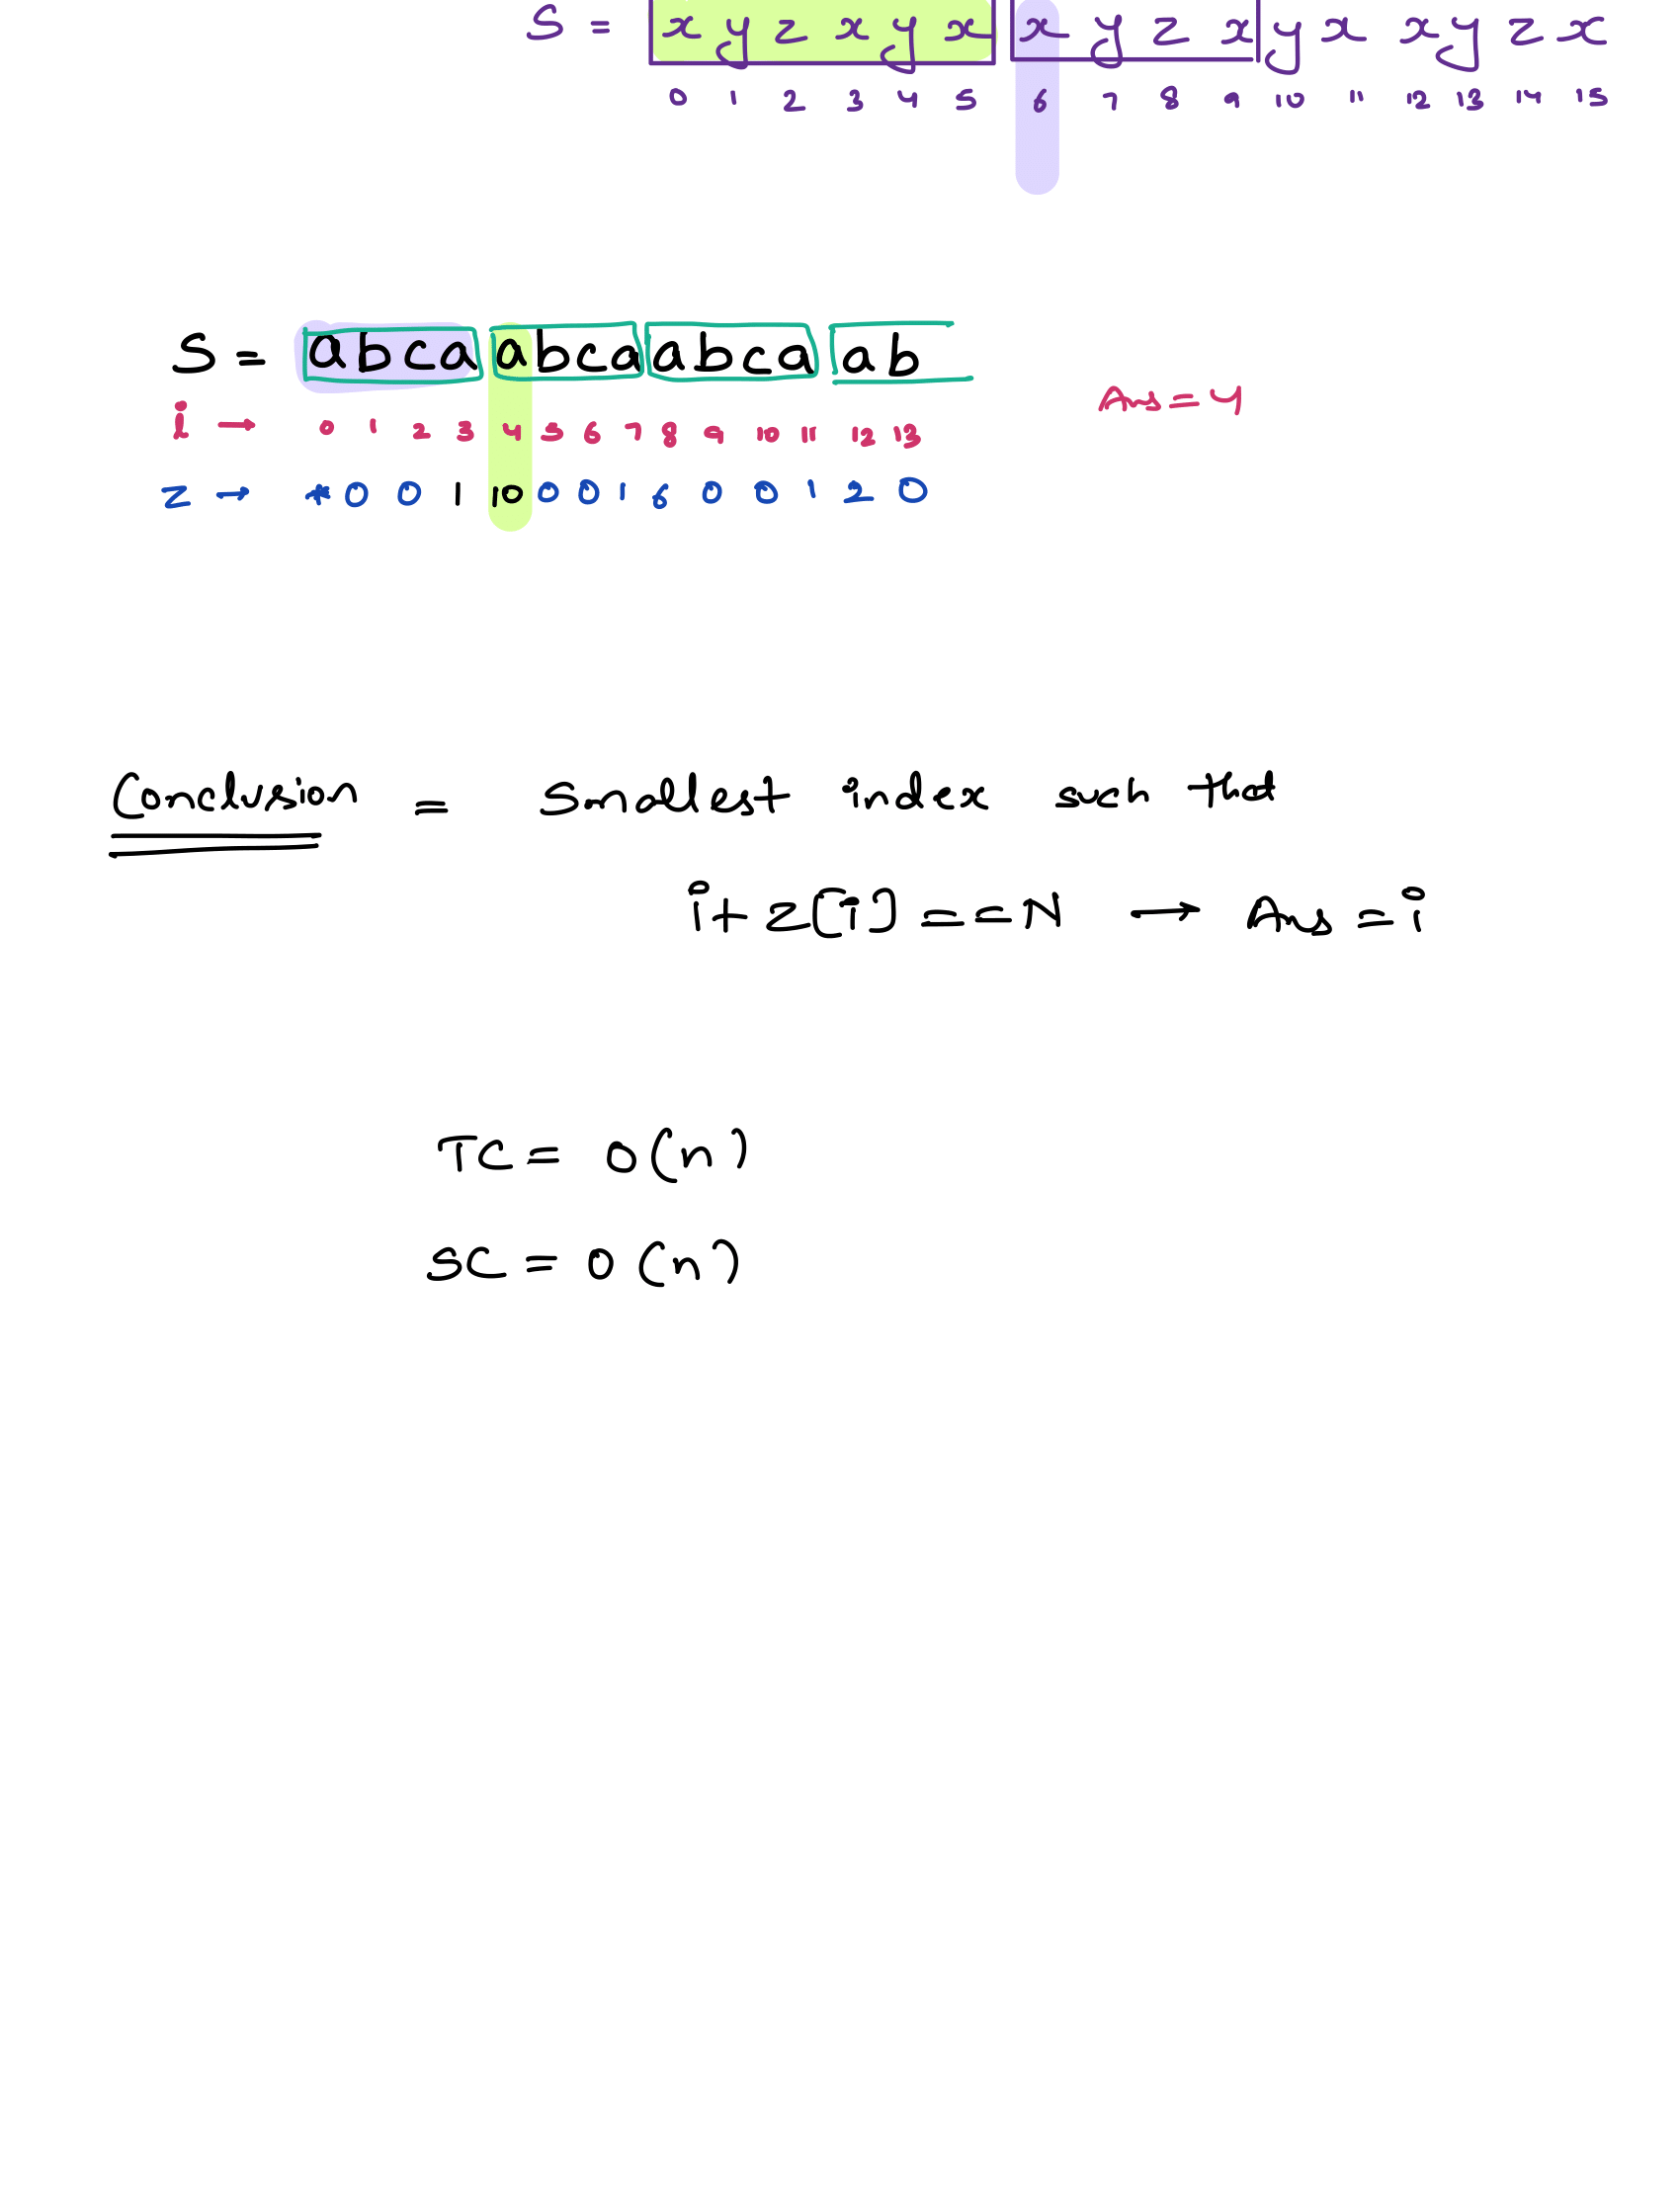 S = x y z x y x x y z x y x x y z x
0 1 2 3 4 5 6 7 8 9 10 11 12 13 14 15
S = abca abca abca ab
Ans = 4
i → 0 1 2 3 4 5 6 7 8 9 10 11 12 13
Z → * 0 0 1 10 0 0 1 6 0 0 1 2 0
Conclusion = Smallest index such that
i + Z[i] == N → Ans = i
TC = O(n)
SC = O(n)